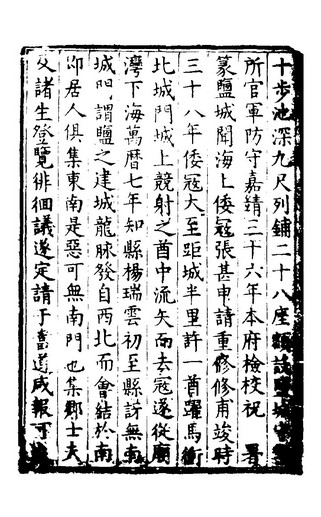 十步池深九尺列鋪二十八座額設鹽城守
所官軍防守嘉靖三十六年本府檢校祝 署
篆鹽城聞海上倭寇張甚申請重修修甫竣時
三十八年倭寇大至距城半里許一酋躍馬衝
北城門城上競射之酋中流矢而去寇遂從廟
灣下海萬曆七年知縣楊瑞雲初至縣訪無南
城門謂鹽之建城龍脉發自西北而會結於南
居人俱集東南是惡可無南門也集鄉士夫
及諸生登覽徘徊議遂定請于當道咸報可